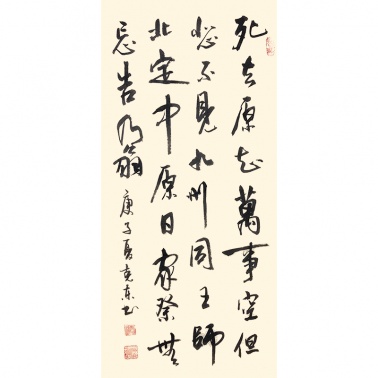 死去原知萬事空但
悲不見九州同王師
北定中原日家祭無
忘告乃翁
庚子夏东书